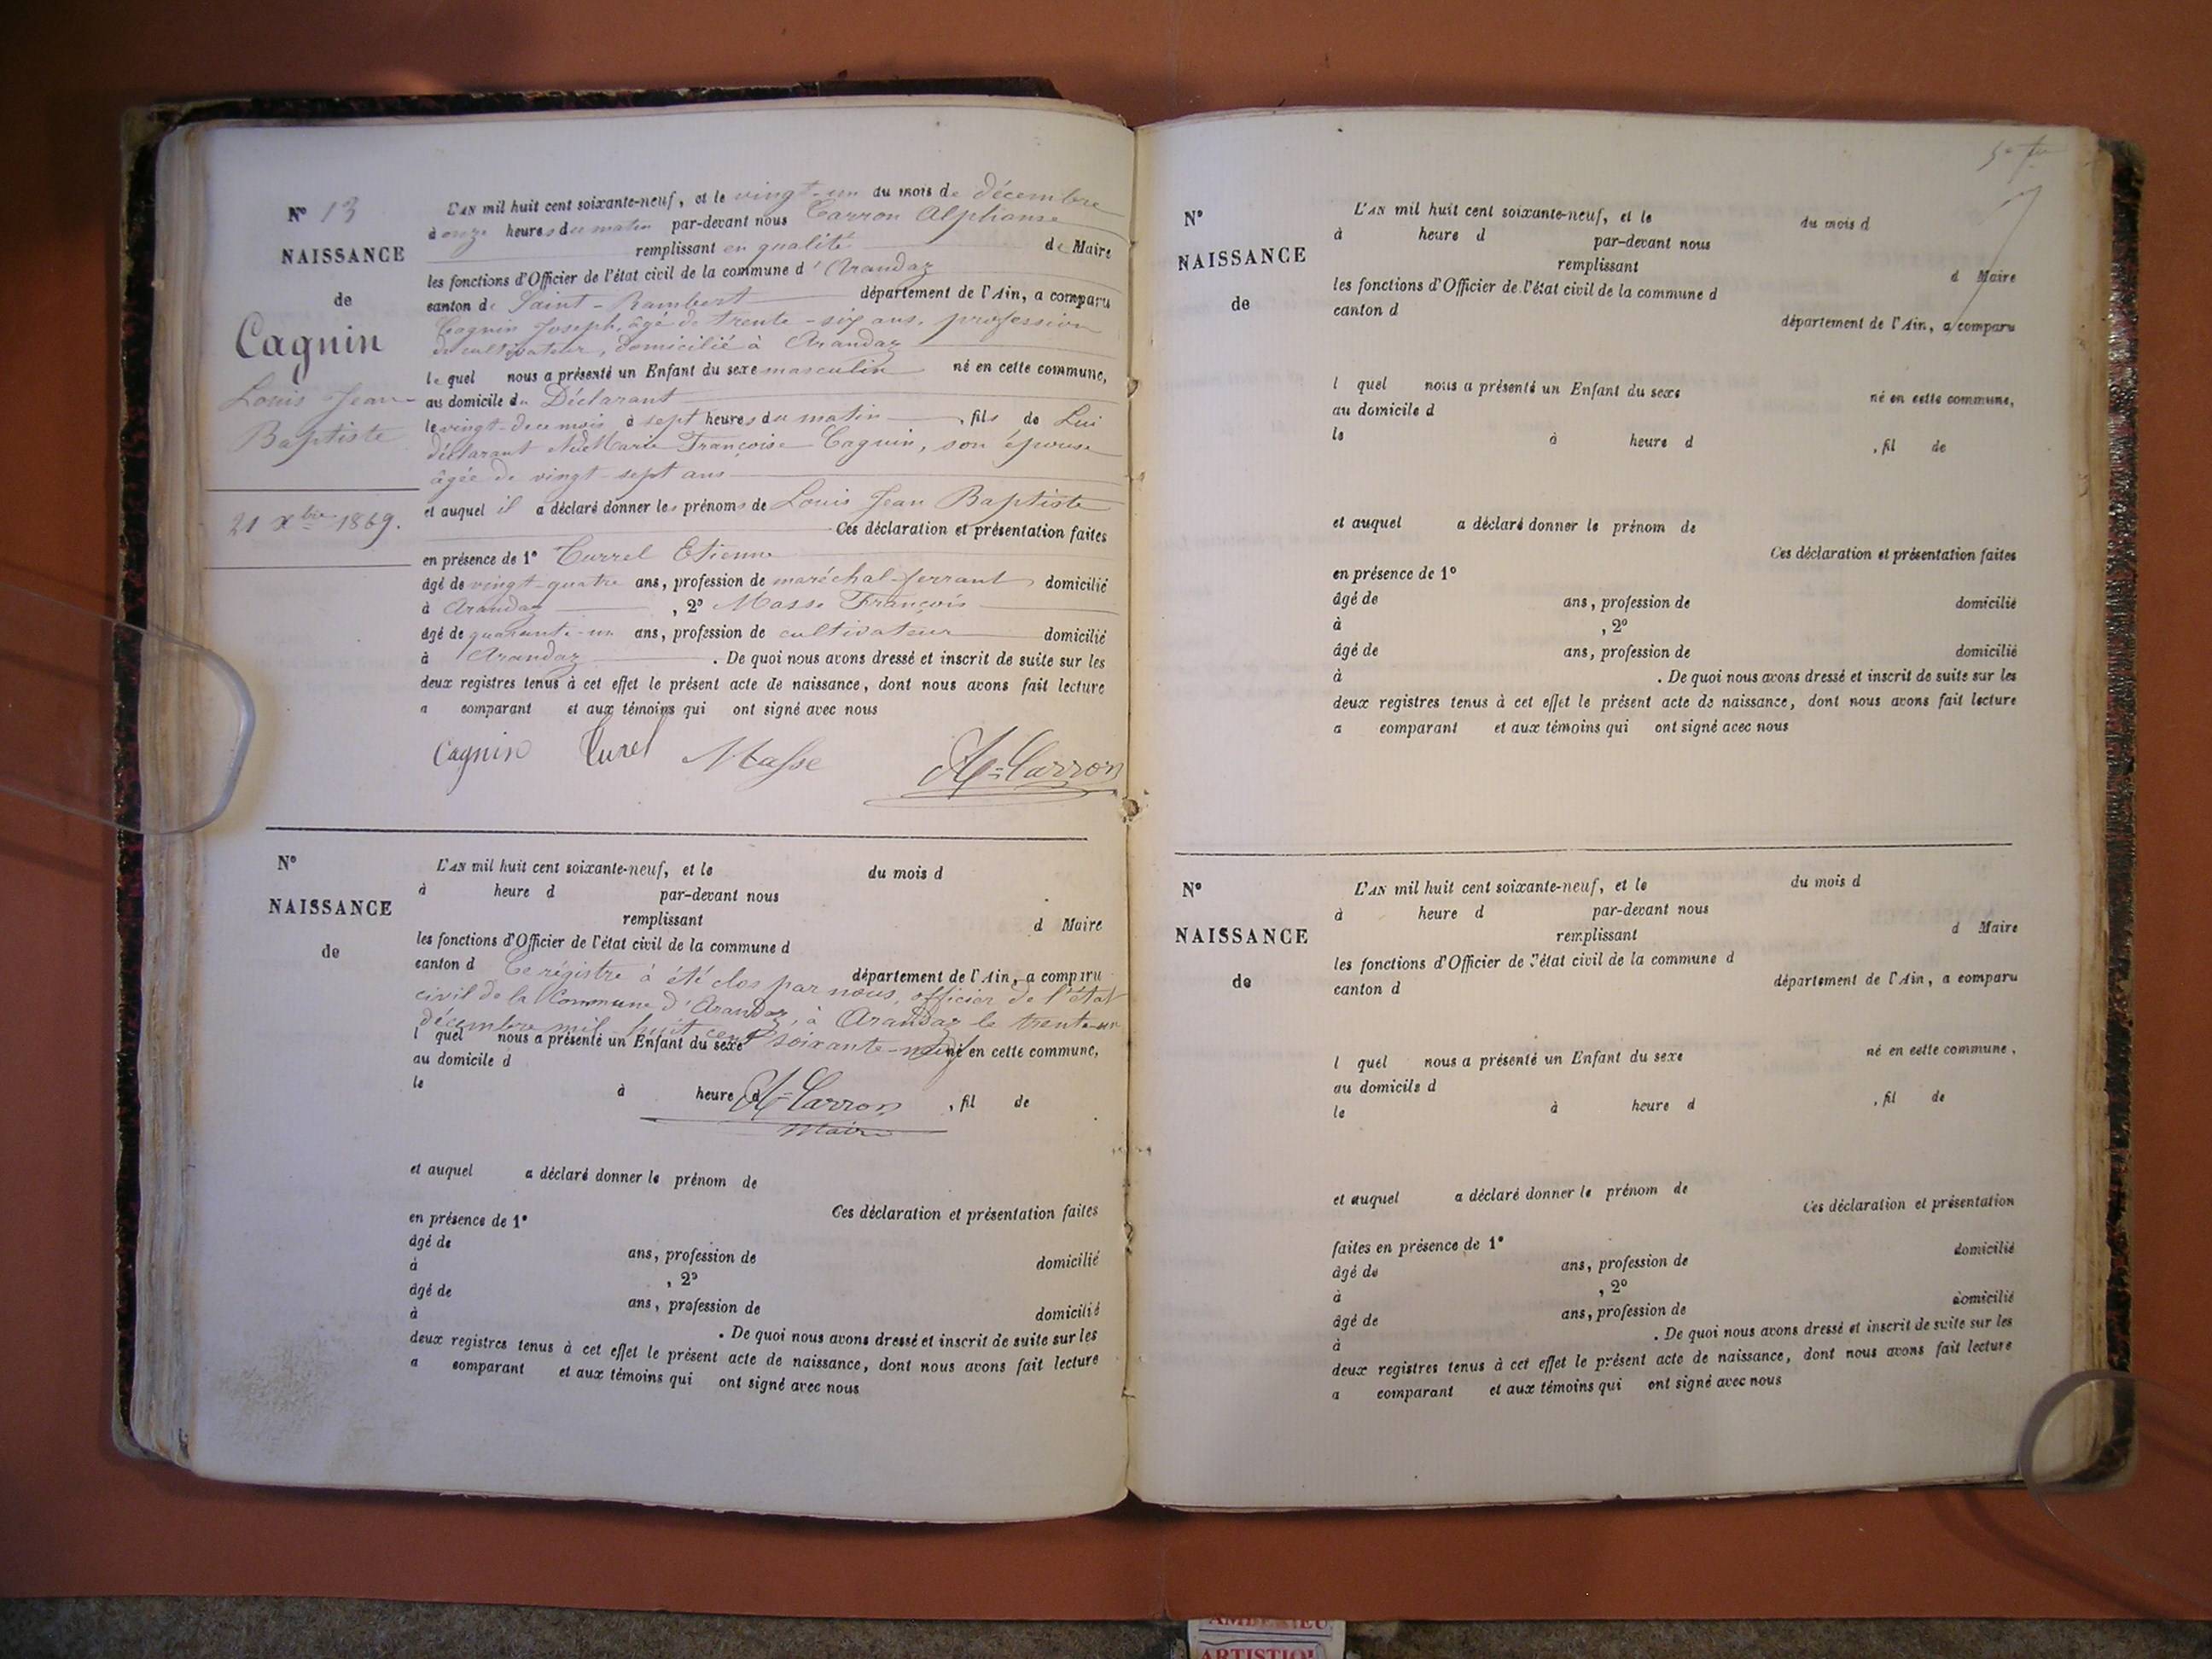 N° 13
NAISSANCE
de
Cagnin
Louis Jean-
Baptiste
21 Xbre 1869.
L'AN mil huit cent soixante-neuf, et le vingt-un du mois de décembre
à onze heures du matin par-devant nous Carron Alphonse
remplissant en qualité de Maire
les fonctions d'Officier de l'état civil de la commune d'Arandaz
canton de Saint-Rambert département de l'Ain, a comparu
Cagnin Joseph, âgé de trente-six ans, profession
de cultivateur, domicilié à Arandaz
lequel nous a présenté un Enfant du sexe masculin né en cette commune,
au domicile du Déclarant
le vingt de ce mois à sept heures du matin , fils de Lui
déclarant Marie Françoise Cagnin, son épouse
âgée de vingt-sept ans
et auquel il a déclaré donner les prénoms de Louis Jean Baptiste
Ces déclaration et présentation faites
en présence de 1° Currel Etienne
âgé de vingt-quatre ans, profession de maréchal-ferrant domicilié
à Arandaz , 2° Masse François
âgé de quarante-un ans, profession de cultivateur domicilié
à Arandaz . De quoi nous avons dressé et inscrit de suite sur les
deux registres tenus à cet effet le présent acte de naissance, dont nous avons fait lecture
a comparant et aux témoins qui ont signé avec nous
Cagnin Curel Masse A-Carron
N°
NAISSANCE
de
L'AN mil huit cent soixante-neuf, et le du mois d
à heure d par-devant nous
remplissant d Maire
les fonctions d'Officier de l'état civil de la commune d
canton d département de l'Ain, a comparu
Ce régistre à été clos par nous, officier de l'état
civil de la Commune d'Arandaz, à Arandaz le trente-un
décembre mil huit cent soixante-neuf
l quel nous a présenté un Enfant du sexe né en cette commune,
au domicile d
le à heure d , fil de
A-Carron
Maire
et auquel a déclaré donner le prénom de
Ces déclaration et présentation faites
en présence de 1°
âgé de ans, profession de domicilié
à , 2°
âgé de ans, profession de domicilié
à . De quoi nous avons dressé et inscrit de suite sur les
deux registres tenus à cet effet le présent acte de naissance, dont nous avons fait lecture
a comparant et aux témoins qui ont signé avec nous
N°
NAISSANCE
de
L'AN mil huit cent soixante-neuf, et le du mois d
à heure d par-devant nous
remplissant d Maire
les fonctions d'Officier de l'état civil de la commune d
canton d département de l'Ain, a comparu
l quel nous a présenté un Enfant du sexe né en cette commune,
au domicile d
le à heure d , fil de
et auquel a déclaré donner le prénom de
Ces déclaration et présentation faites
en présence de 1°
âgé de ans, profession de domicilié
à , 2°
âgé de ans, profession de domicilié
à . De quoi nous avons dressé et inscrit de suite sur les
deux registres tenus à cet effet le présent acte de naissance, dont nous avons fait lecture
a comparant et aux témoins qui ont signé avec nous
N°
NAISSANCE
de
L'AN mil huit cent soixante-neuf, et le du mois d
à heure d par-devant nous
remplissant d Maire
les fonctions d'Officier de l'état civil de la commune d
canton d département de l'Ain, a comparu
l quel nous a présenté un Enfant du sexe né en cette commune,
au domicile d
le à heure d , fil de
et auquel a déclaré donner le prénom de
Ces déclaration et présentation
faites en présence de 1°
âgé de ans, profession de domicilié
à , 2°
âgé de ans, profession de domicilié
à . De quoi nous avons dressé et inscrit de suite sur les
deux registres tenus à cet effet le présent acte de naissance, dont nous avons fait lecture
a comparant et aux témoins qui ont signé avec nous